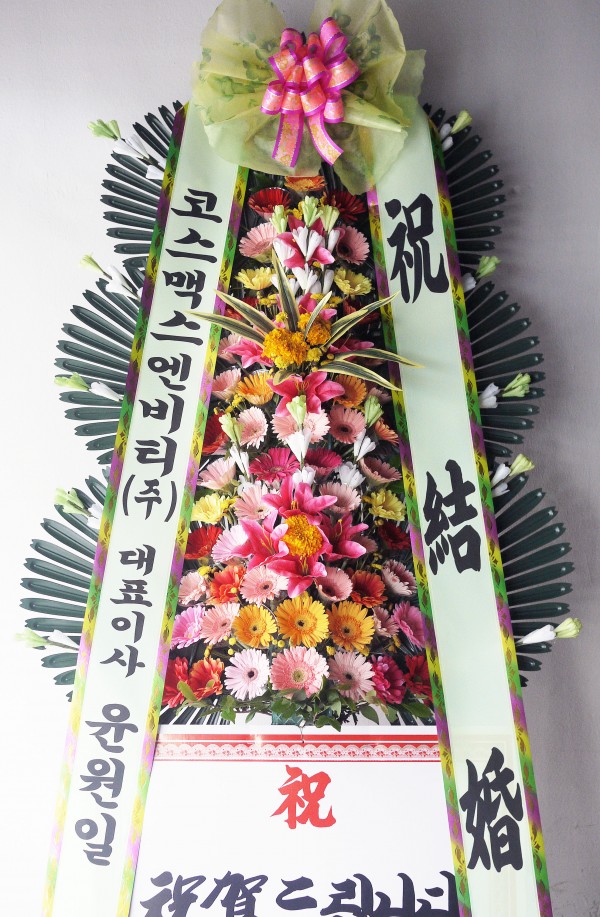 코스맥스엔비티(주) 대표이사 윤원일
祝 結婚
祝
祝賀드립니다